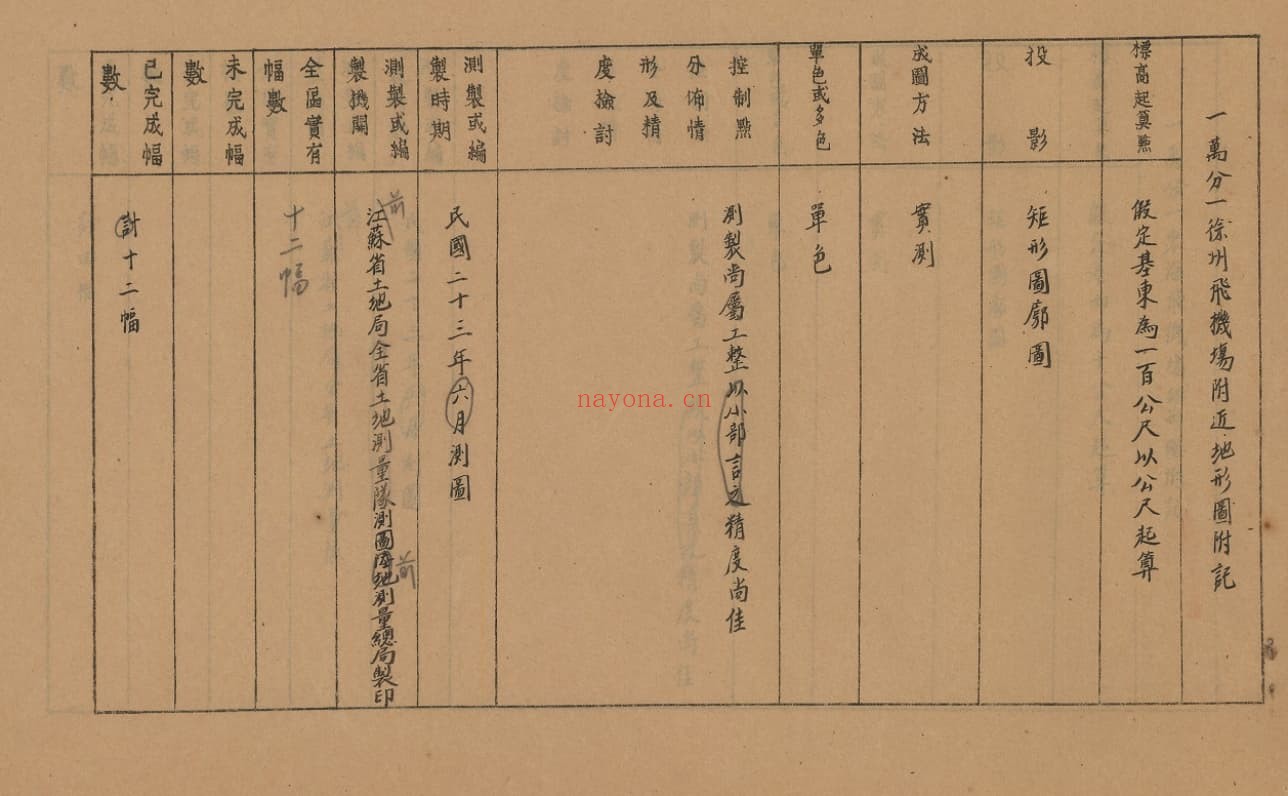 一萬分一徐州飛機場附近地形圖附記
標高起算點
假定基東為一百公尺以公尺起算
投影
矩形圖廓圖
成圖方法
實測
單色或多色
單色
控制點
分佈情
形及精
度檢討
測製尚屬工整以小部言之精度尚佳
測製或編
製時期
民國二十三年六月測圖
測製或編
製機關
前
江蘇省土地局全省土地測量隊測圖陸地測量總局製印
前
全區實有
幅數
十二幅
未完成幅
數
已完成幅
數
計十二幅
nayona.cn